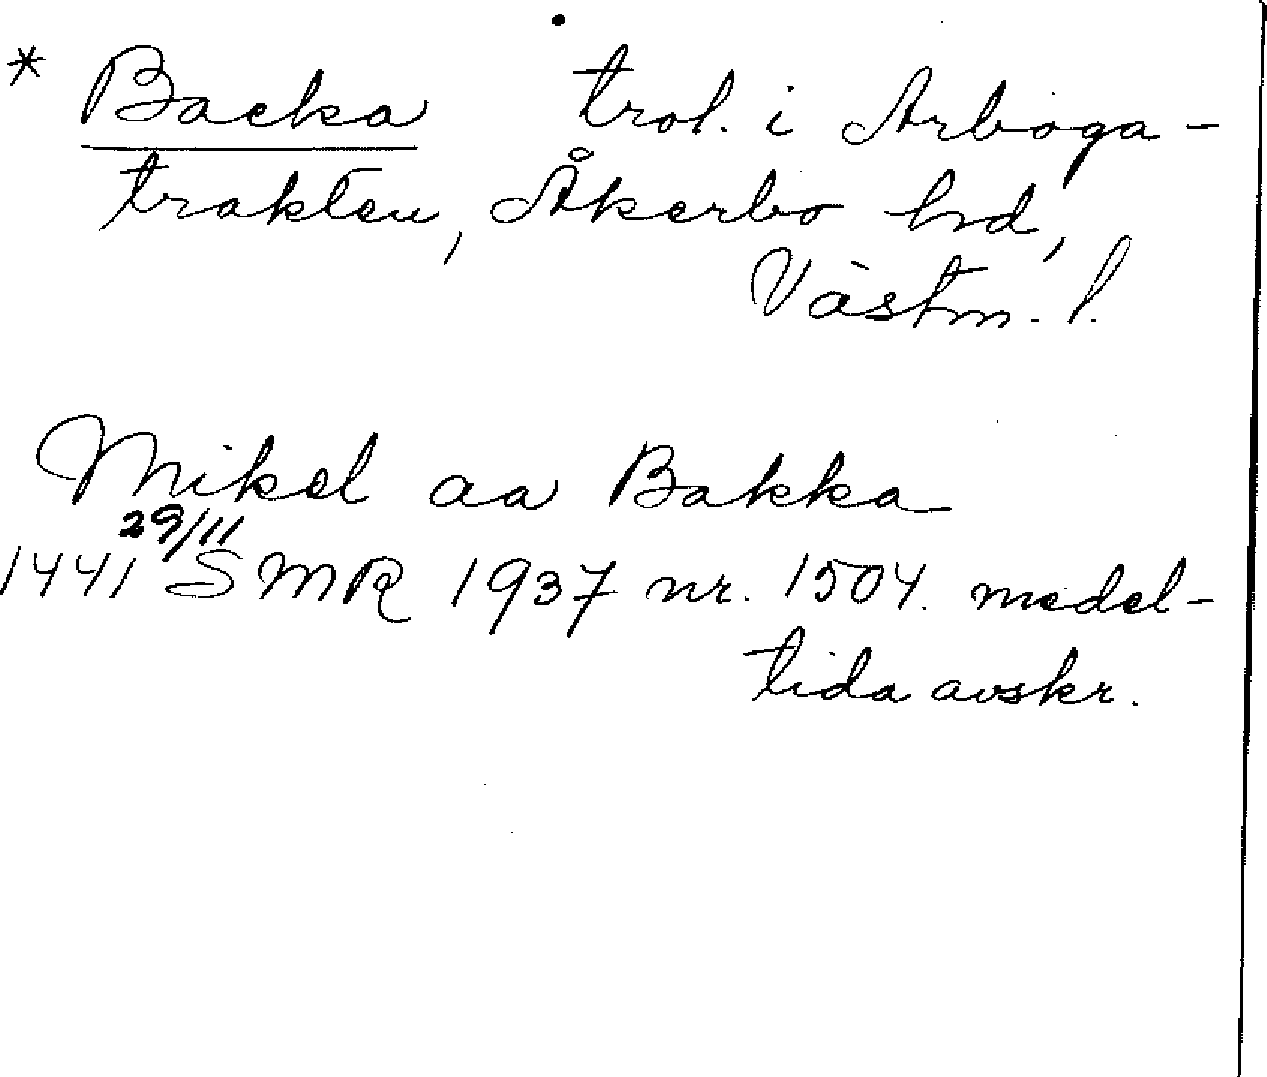 * Backa trol. i Arboga-
trakten, Åkerbo hd,
Västm. l.
Mikel aa Bakka
29/11
1441 SMR 1937 nr. 1504. medel-
tida avskr.